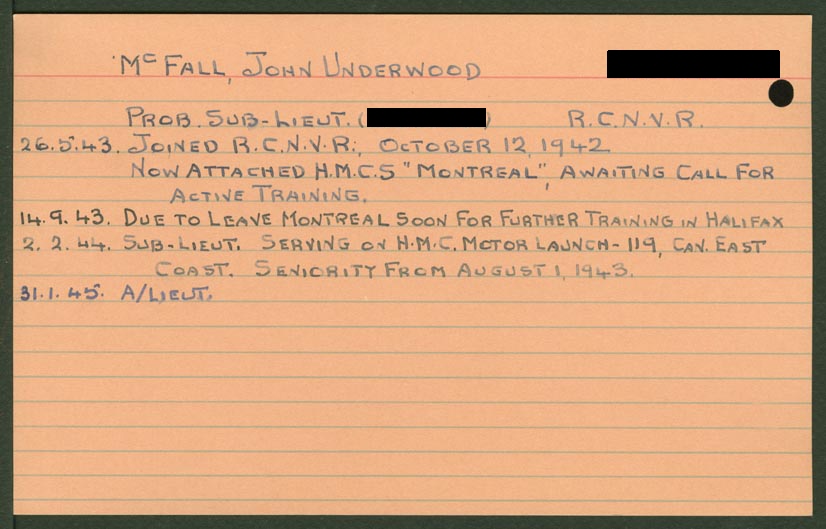 McFALL, JOHN UNDERWOOD
PROB. SUB-LIEUT. ( ) R.C.N.V.R.
26.5.43. JOINED R.C.N.V.R., OCTOBER 12, 1942
NOW ATTACHED H.M.C.S "MONTREAL", AWAITING CALL FOR
ACTIVE TRAINING.
14.9.43. DUE TO LEAVE MONTREAL SOON FOR FURTHER TRAINING IN HALIFAX
2.2.44. SUB-LIEUT. SERVING ON H.M.C. MOTOR LAUNCH-119, CAN. EAST
COAST. SENIORITY FROM AUGUST 1, 1943.
31.1.45. A/LIEUT.